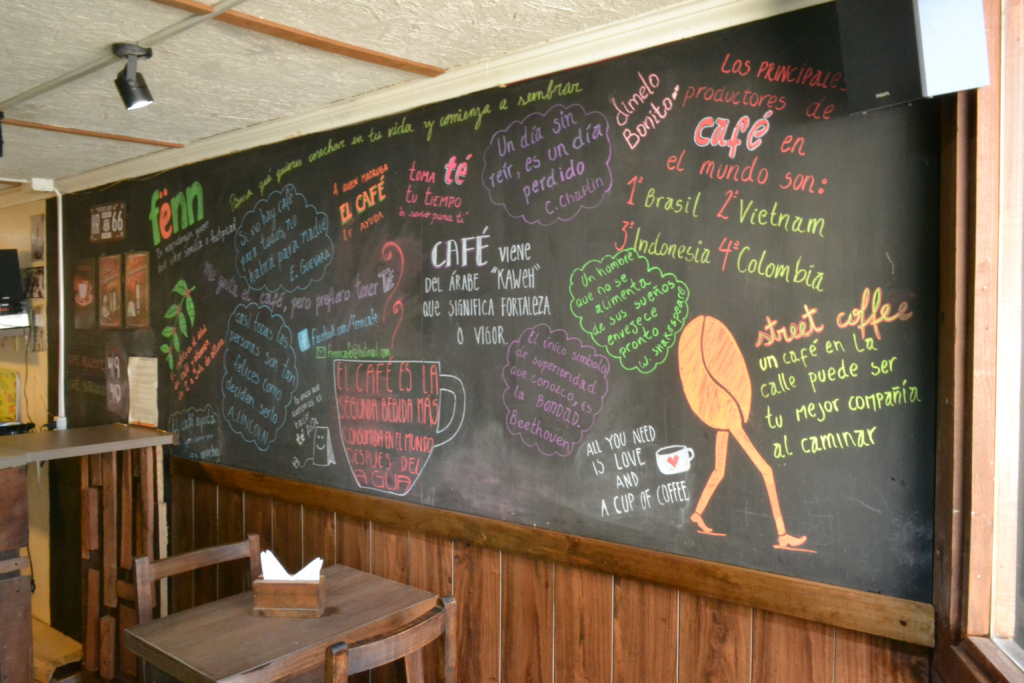 Piensa qué quieres cosechar en tu vida y comienza a sembrar
fënn
66
Si no hay café
para todos, no
habrá para nadie
E. GUEVARA
A QUIEN MADRUGA
EL CAFÉ
LE AYUDA
toma té
tu tiempo
Un día sin
reír, es un día
perdido
C. Chaplin
dímelo
Bonito...
Los PRINCIPALES
productores de
café en
el mundo son:
1º Brasil 2º Vietnam
3º Indonesia 4º Colombia
el café, pero prefiero tener Té
facebook.com/fenncafe
fenncafe@hotmail.com
CAFÉ VIENE
DEL ÁRABE "KAWEH"
QUE SIGNIFICA FORTALEZA
O VIGOR.
Un hombre
que no se
alimenta
de sus sueños
envejece
pronto
W. Shakespeare
Casi todas las
personas son tan
felices como
deciden serlo
A. LINCOLN
EL CAFÉ ES LA
SEGUNDA BEBIDA MÁS
CONSUMIDA EN EL MUNDO
DESPUÉS DEL
AGUA
El único símbolo
de superioridad
que conozco, es
la BONDAD.
Beethoven
ALL YOU NEED
IS LOVE
AND
A CUP OF COFFEE
street coffee
un café en la
calle puede ser
tu mejor compañía
al caminar